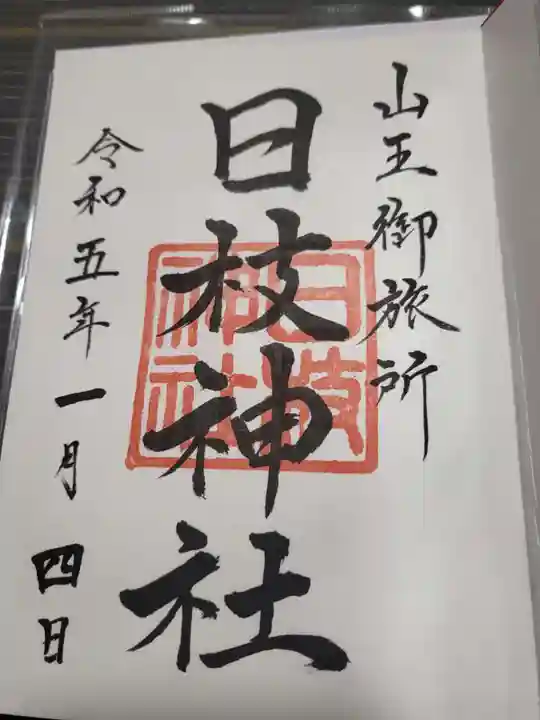 山王御旅所
日枝神社
日枝神社
令和五年一月四日